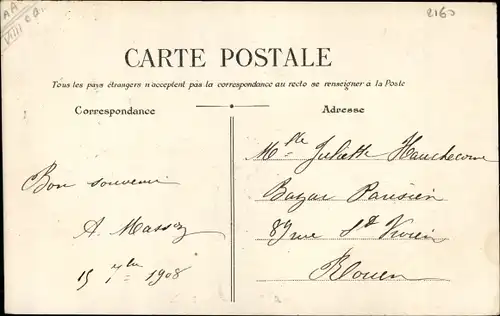 AA
VIII
2160
CARTE POSTALE
Tous les pays étrangers n'acceptent pas la correspondance au recto se renseigner à la Poste
Correspondance
Adresse
Mlle Juliette Hauchecorne
Bon souvenir
Bazar Parisien
A. Massez
89 rue St Vivien
15 7bre 1908
Rouen